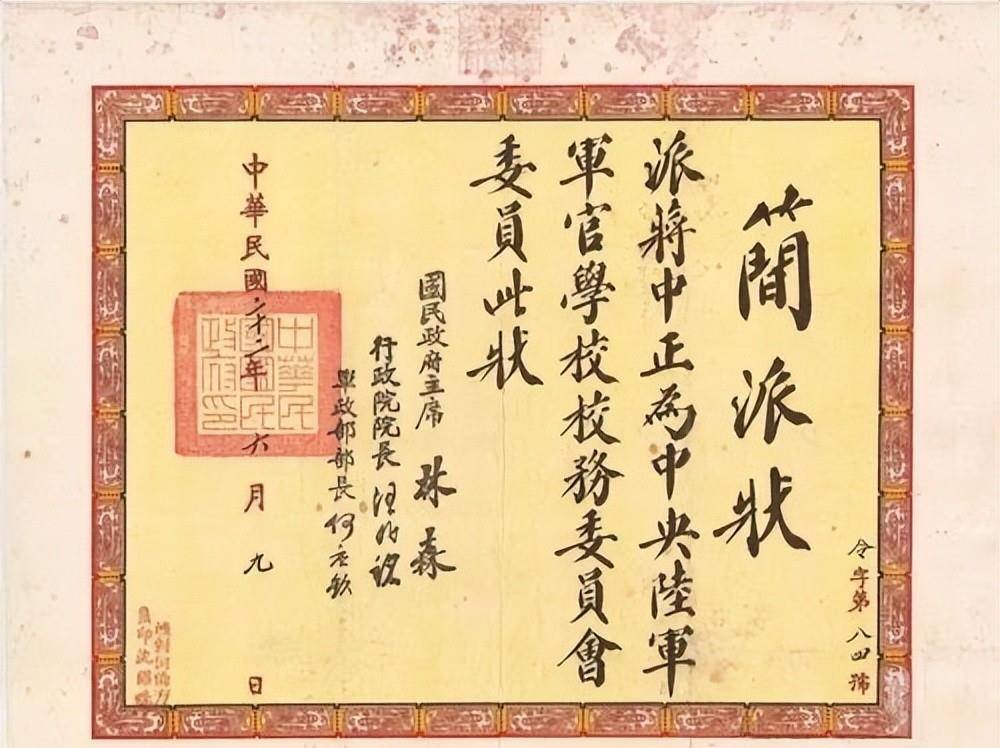 令字第八四號
簡派狀
派蔣中正為中央陸軍
軍官學校校務委員會
委員此狀
國民政府主席 林森
行政院院長 汪兆銘
軍政部部長 何應欽
中華民國二十二年六月九日
中華民
國國民
政府印